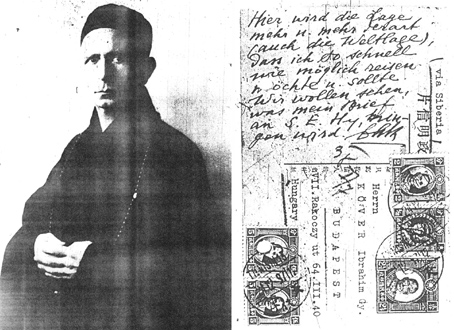 Hier wird die Lage
mehr u. mehr
(auch die Weltlage),
dass ich so schnell
wie möglich reisen
möchte u. sollte.
Wir wollen sehen,
was mein Brief
an S. E. Hy,
gen wird!
(via Siberia
片信明政
Herrn
KÖVER Ibrahim Gy.
BUDAPEST
VII. Rakoczy ut 64.III.40
Hungary